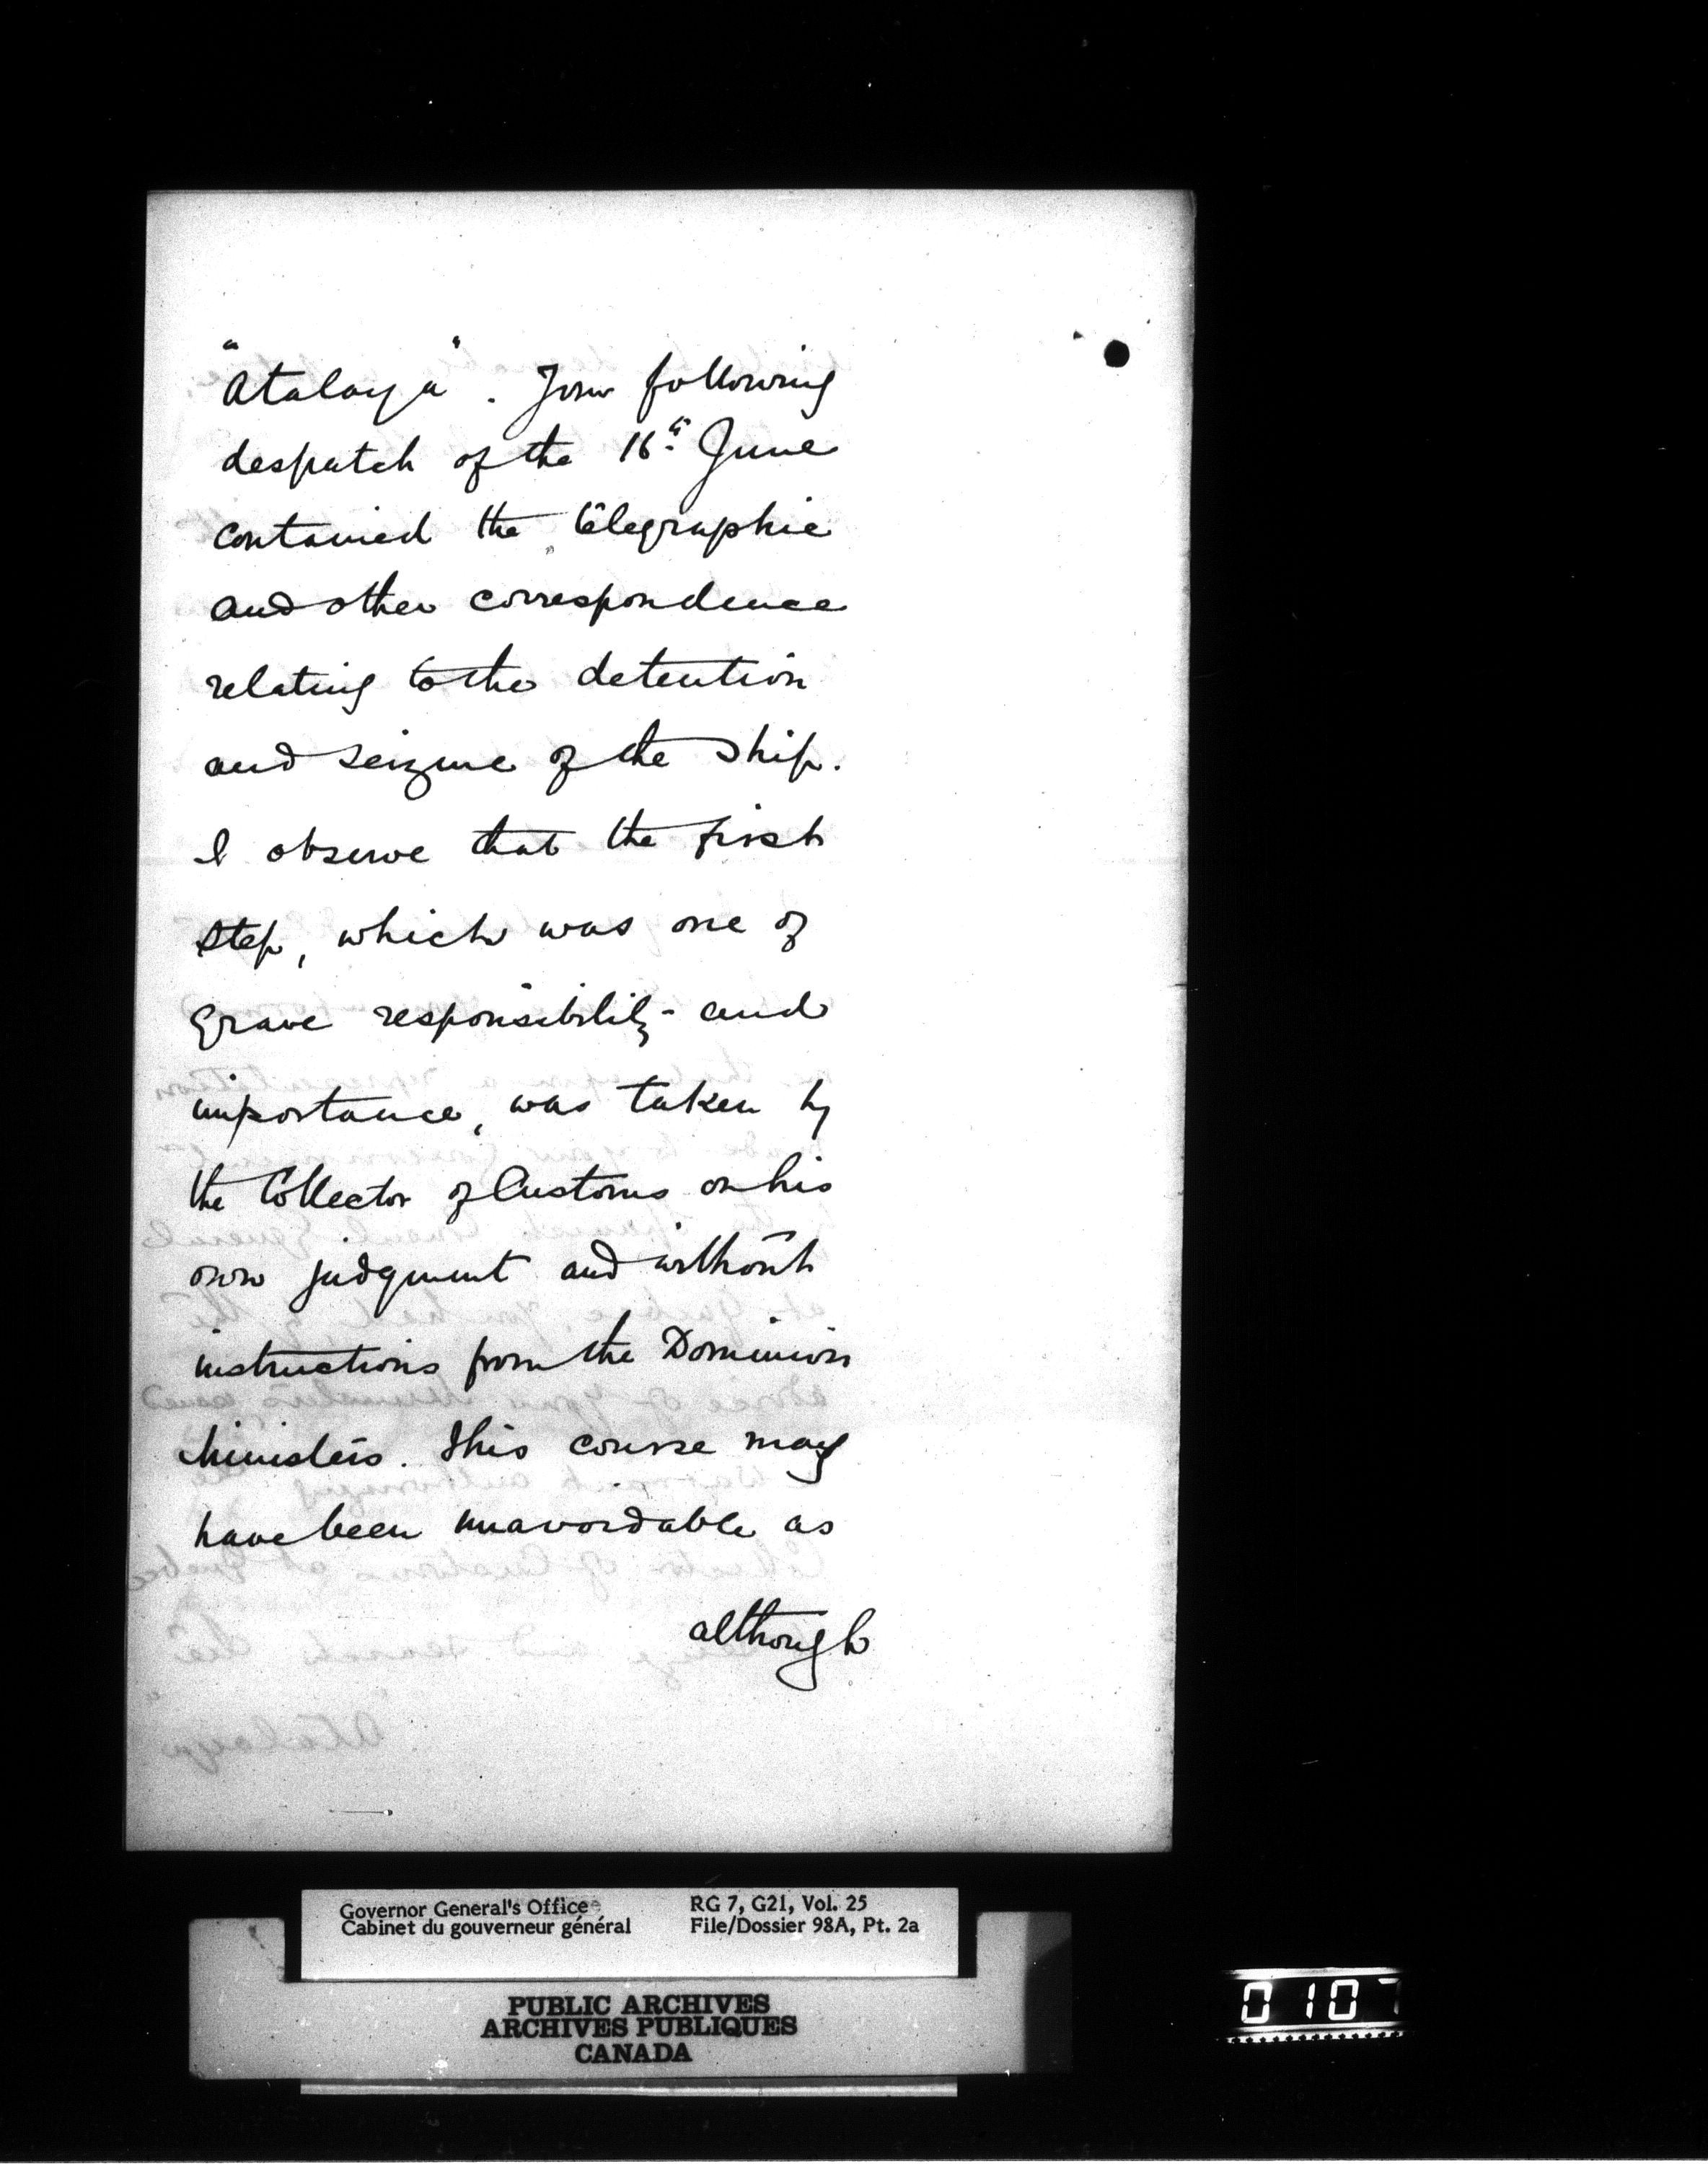 "Atalaya". Your following
despatch of the 16th June
contained the telegraphic
and other correspondence
relating to the detention
and seizure of the ship.
I observe that the first
step, which was one of
grave responsibility and
importance, was taken by
the Collector of Customs on his
own judgment and without
instructions from the Dominion
Ministers. This course may
have been unavoidable as
although
Governor General's Office
Cabinet du gouverneur général
RG 7, G21, Vol. 25
File/Dossier 98A, Pt. 2a
PUBLIC ARCHIVES
ARCHIVES PUBLIQUES
CANADA
0107